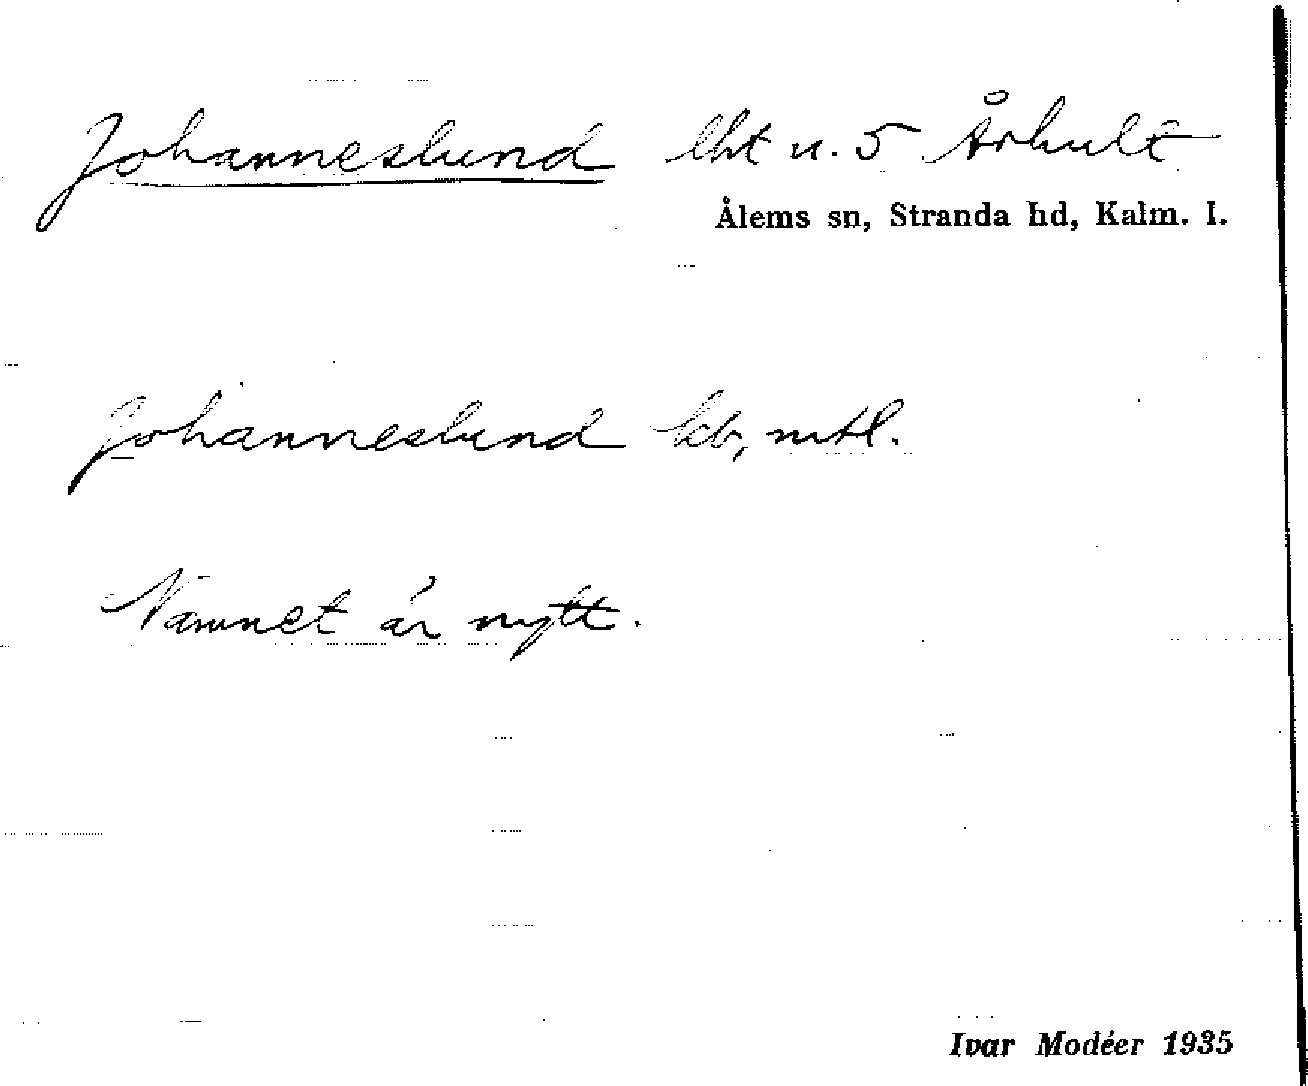 Johanneslund lht u. 5 Århult
Ålems sn, Stranda hd, Kalm. l.
Johanneslund kb, mtl.
Namnet är nytt.
Ivar Modéer 1935